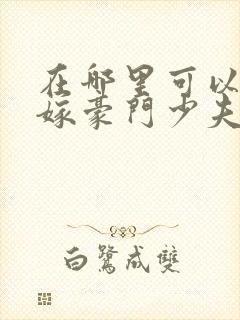 在哪里可以
嫁豪門少夫
白鷺成雙